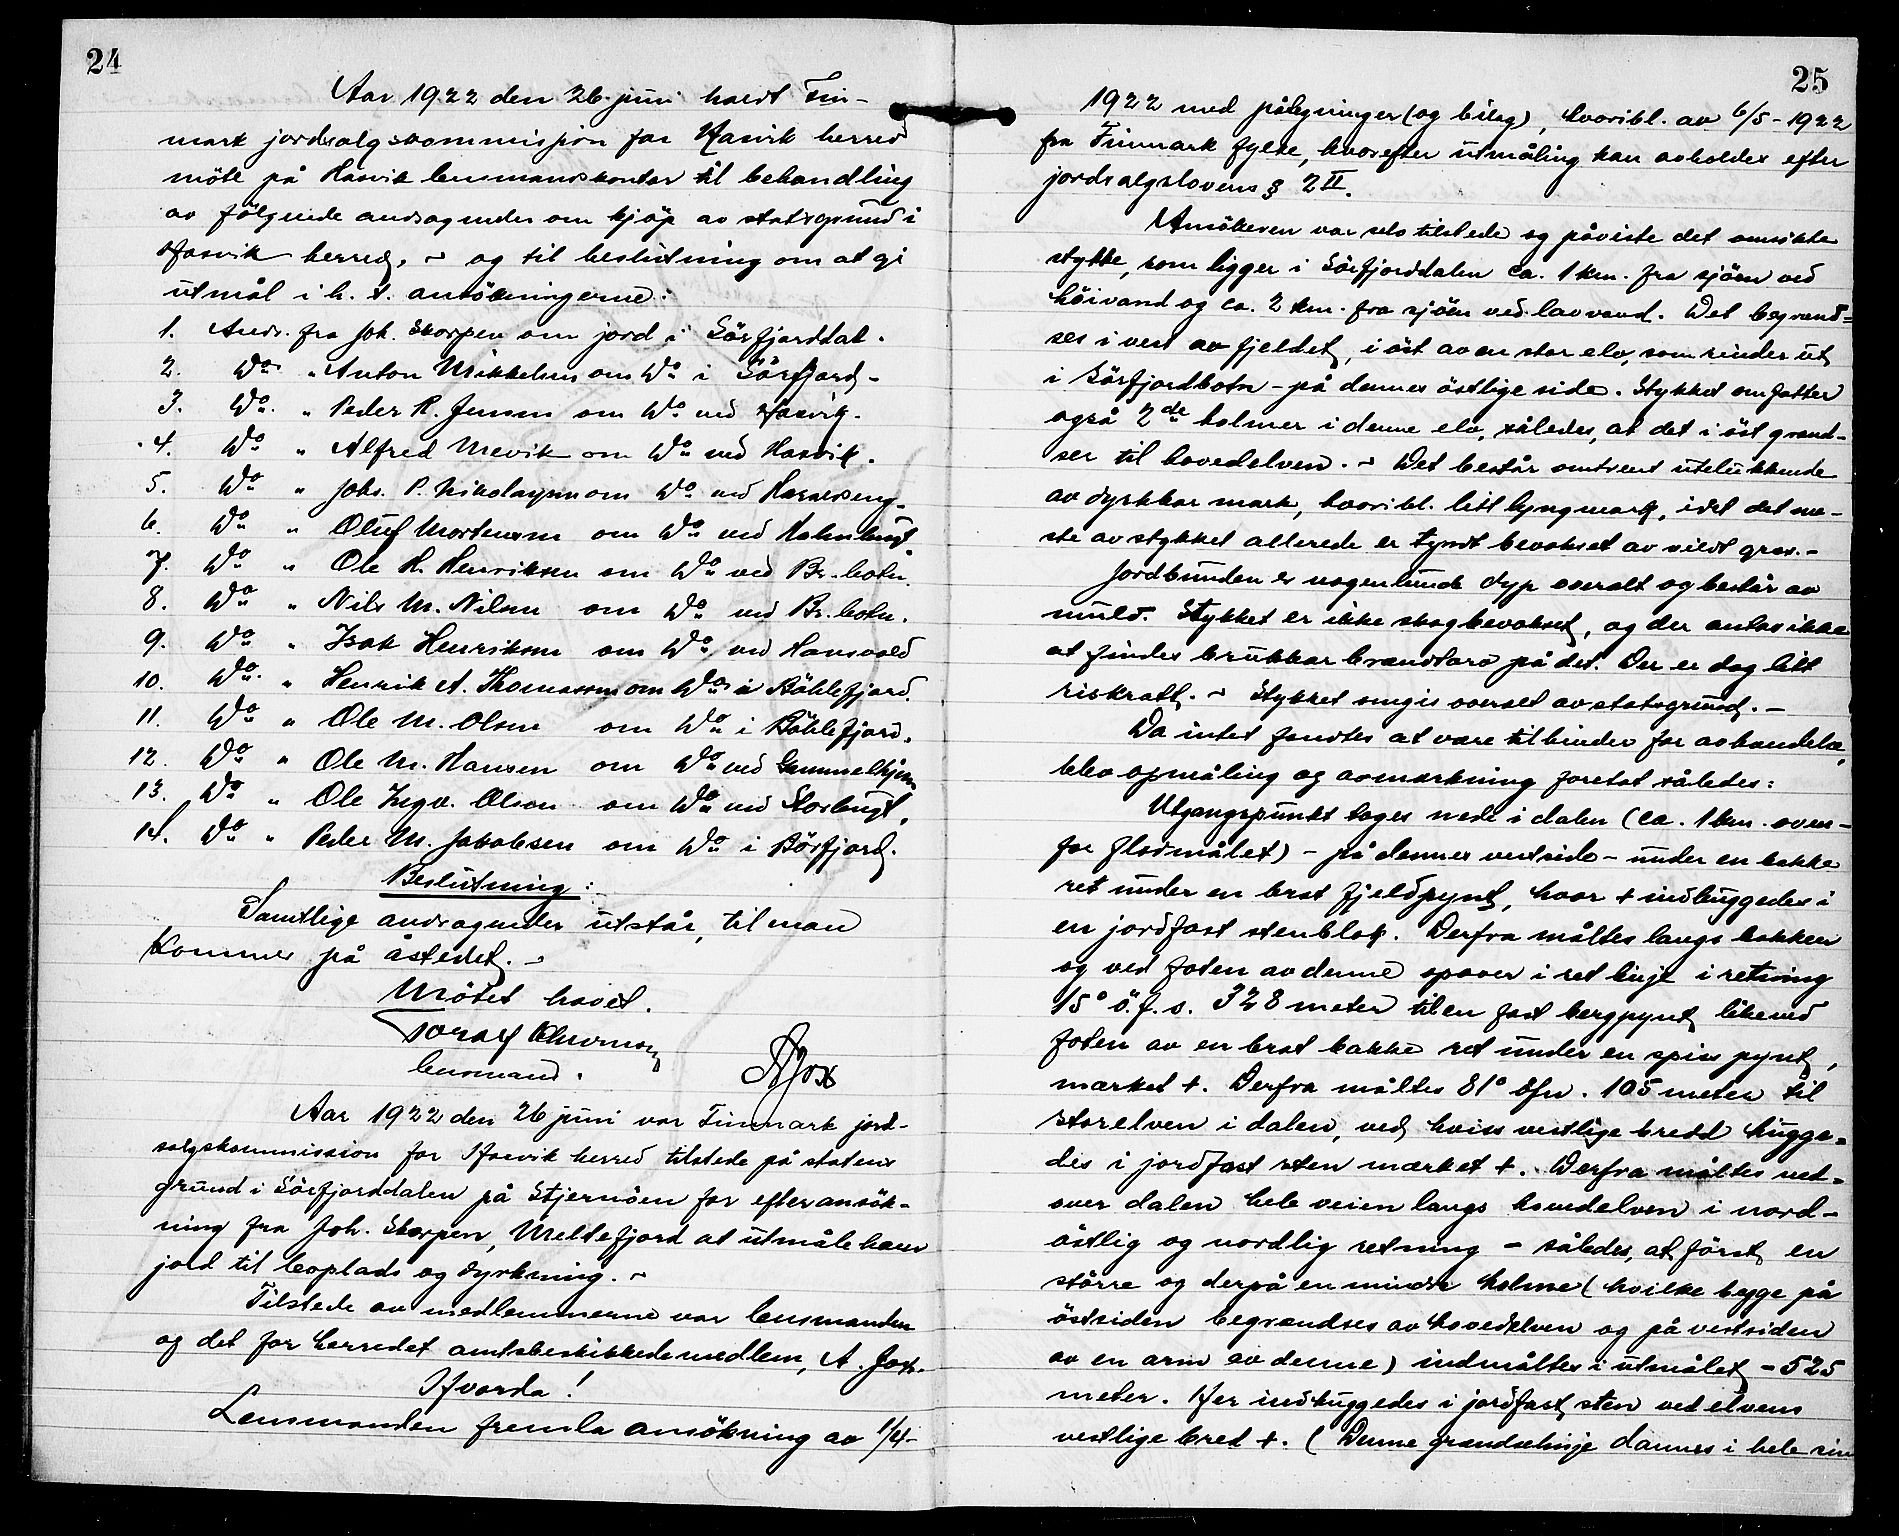 24
Aar 1922 den 26. juni holdt Fin-
mark jordsalgskommission for Hasvik herred
möte på Hasvik lensmanskontor til behandling
av fölgende andragender om kjöp av statsgrund i
Hasvik herred, - og til beslutning om at gi
utmål i h. t. ansökningerne:
1. Andr. fra Joh. Skorpen om jord i Sörfjorddal.
2. Do " Anton Mikkelsen om Do i Sörfjord.
3. Do " Peder R. Jensen om Do ved Hasvik.
4. Do " Alfred Mevik om Do ved Hasvik.
5. Do " Johs. P. Nikolaysen om Do ved
6. Do " Oluf Mortensen om Do ved
7. Do " Ole H. Henriksen om Do ved Br.botn.
8. Do " Nils M. Nilsen om Do ved Br.botn.
9. Do " Isak Henriksen om Do ved
10. Do " Henrik A. Thomassen om Do i Böhlefjord.
11. Do " Ole M. Olsen om Do i Böhlefjord.
12. Do " Ole M. Hansen om Do ved Gammelhjem
13. Do " Ole Ingv. Olsen om Do ved Storbugt.
14. Do " Peder M. Jakobsen om Do i Börfjord.
Beslutning:
Samtlige andragender utstår, til man
kommer på åstedet. -
Mötet hævet.
Toralf
lensmand. A Jox
Aar 1922 den 26 juni var Finmark jord-
salgskommission for Hasvik herred tilstede på statens
grund i Sörfjorddalen på Stjernöen for efter ansök-
ning fra Joh. Skorpen, Meltefjord at utmåle ham
jord til boplads og dyrkning. -
Tilstede av medlemmerne var lensmanden
og det for herredet amtsbeskikkede medlem, A. Jox.
Hvorda!
Lensmanden fremla ansökning av 1/4-
25
1922 med påtegninger (og bilag), hvoribl. av 6/5-1922
fra Finmark fylke, hvorefter utmåling kan avholdes efter
jordsalgslovens § 2 II.
Ansökeren var selv tilstede og påviste det ansökte
stykke, som ligger i Sörfjorddalen ca. 1 km. fra sjöen ved
höivand og ca. 2 km. fra sjöen ved lavvand. Det begrænd=
ses i vest av fjeldet, i öst av en stor elv, som rinder ut
i Sörfjordbotn - på dennes östlige side. Stykket omfatter
også 2de holmer i denne elv, således, at det i öst grænd-
ser til hovedelven. - Det består omtrent utelukkende
av dyrkbar mark, hvoribl. litt lyngmark, idet det me-
ste av stykket allerede er tyndt bevokset av vildt græs. -
Jordbunden er nogenlunde dyp overalt og består av
muld. Stykket er ikke skogbevokset, og der antas ikke
at findes brukbar brændtorv på det. Der er dog litt
riskratt. - Stykket omgis overalt av statsgrund. -
Da intet fandtes at være til hinder for avhændelse,
blev opmåling og avmerkning foretat således:
Utgangspunkt tages nede i dalen (ca. 1 km. oven-
for flodmålet) - på dennes vestside - under en bakke
ret under en brat fjeldpynt, hvor + indhuggedes i
en jordfast stenblok. Derfra måltes langs bakken
og ved foten av denne opover i ret linje i retning
15° ö.f.s. 328 meter til en fast bergpynt like ved
foten av en brat bakke ret under en spiss pynt,
mærket +. Derfra måltes 81° öfn. 105 meter til
storelven i dalen, ved hviss vestlige bredd hugge=
des i jordfast sten mærket +. Derfra måltes ned=
over dalen hele veien langs hovedelven i nord-
östlig og nordlig retning - således, at först en
större og derpå en mindre holme (hvilke begge på
östsiden begrændses av hovedelven og på vestsiden
av en arm av denne) indmåltes i utmålet - 525
meter. Her indhuggedes i jordfast sten ved elvens
vestlige bred +. (Denne grændselinje dannes i hele sin